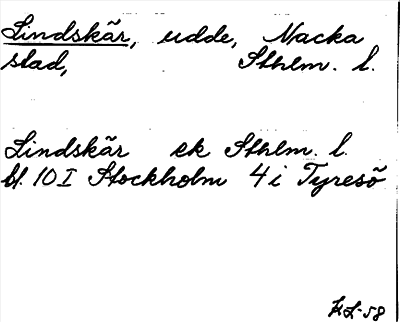 Lindskär, udde, Nacka
stad, Sthlm. l.
Lindskär ek Sthlm. l.
bl. 10 I Stockholm 4 i Tyresö